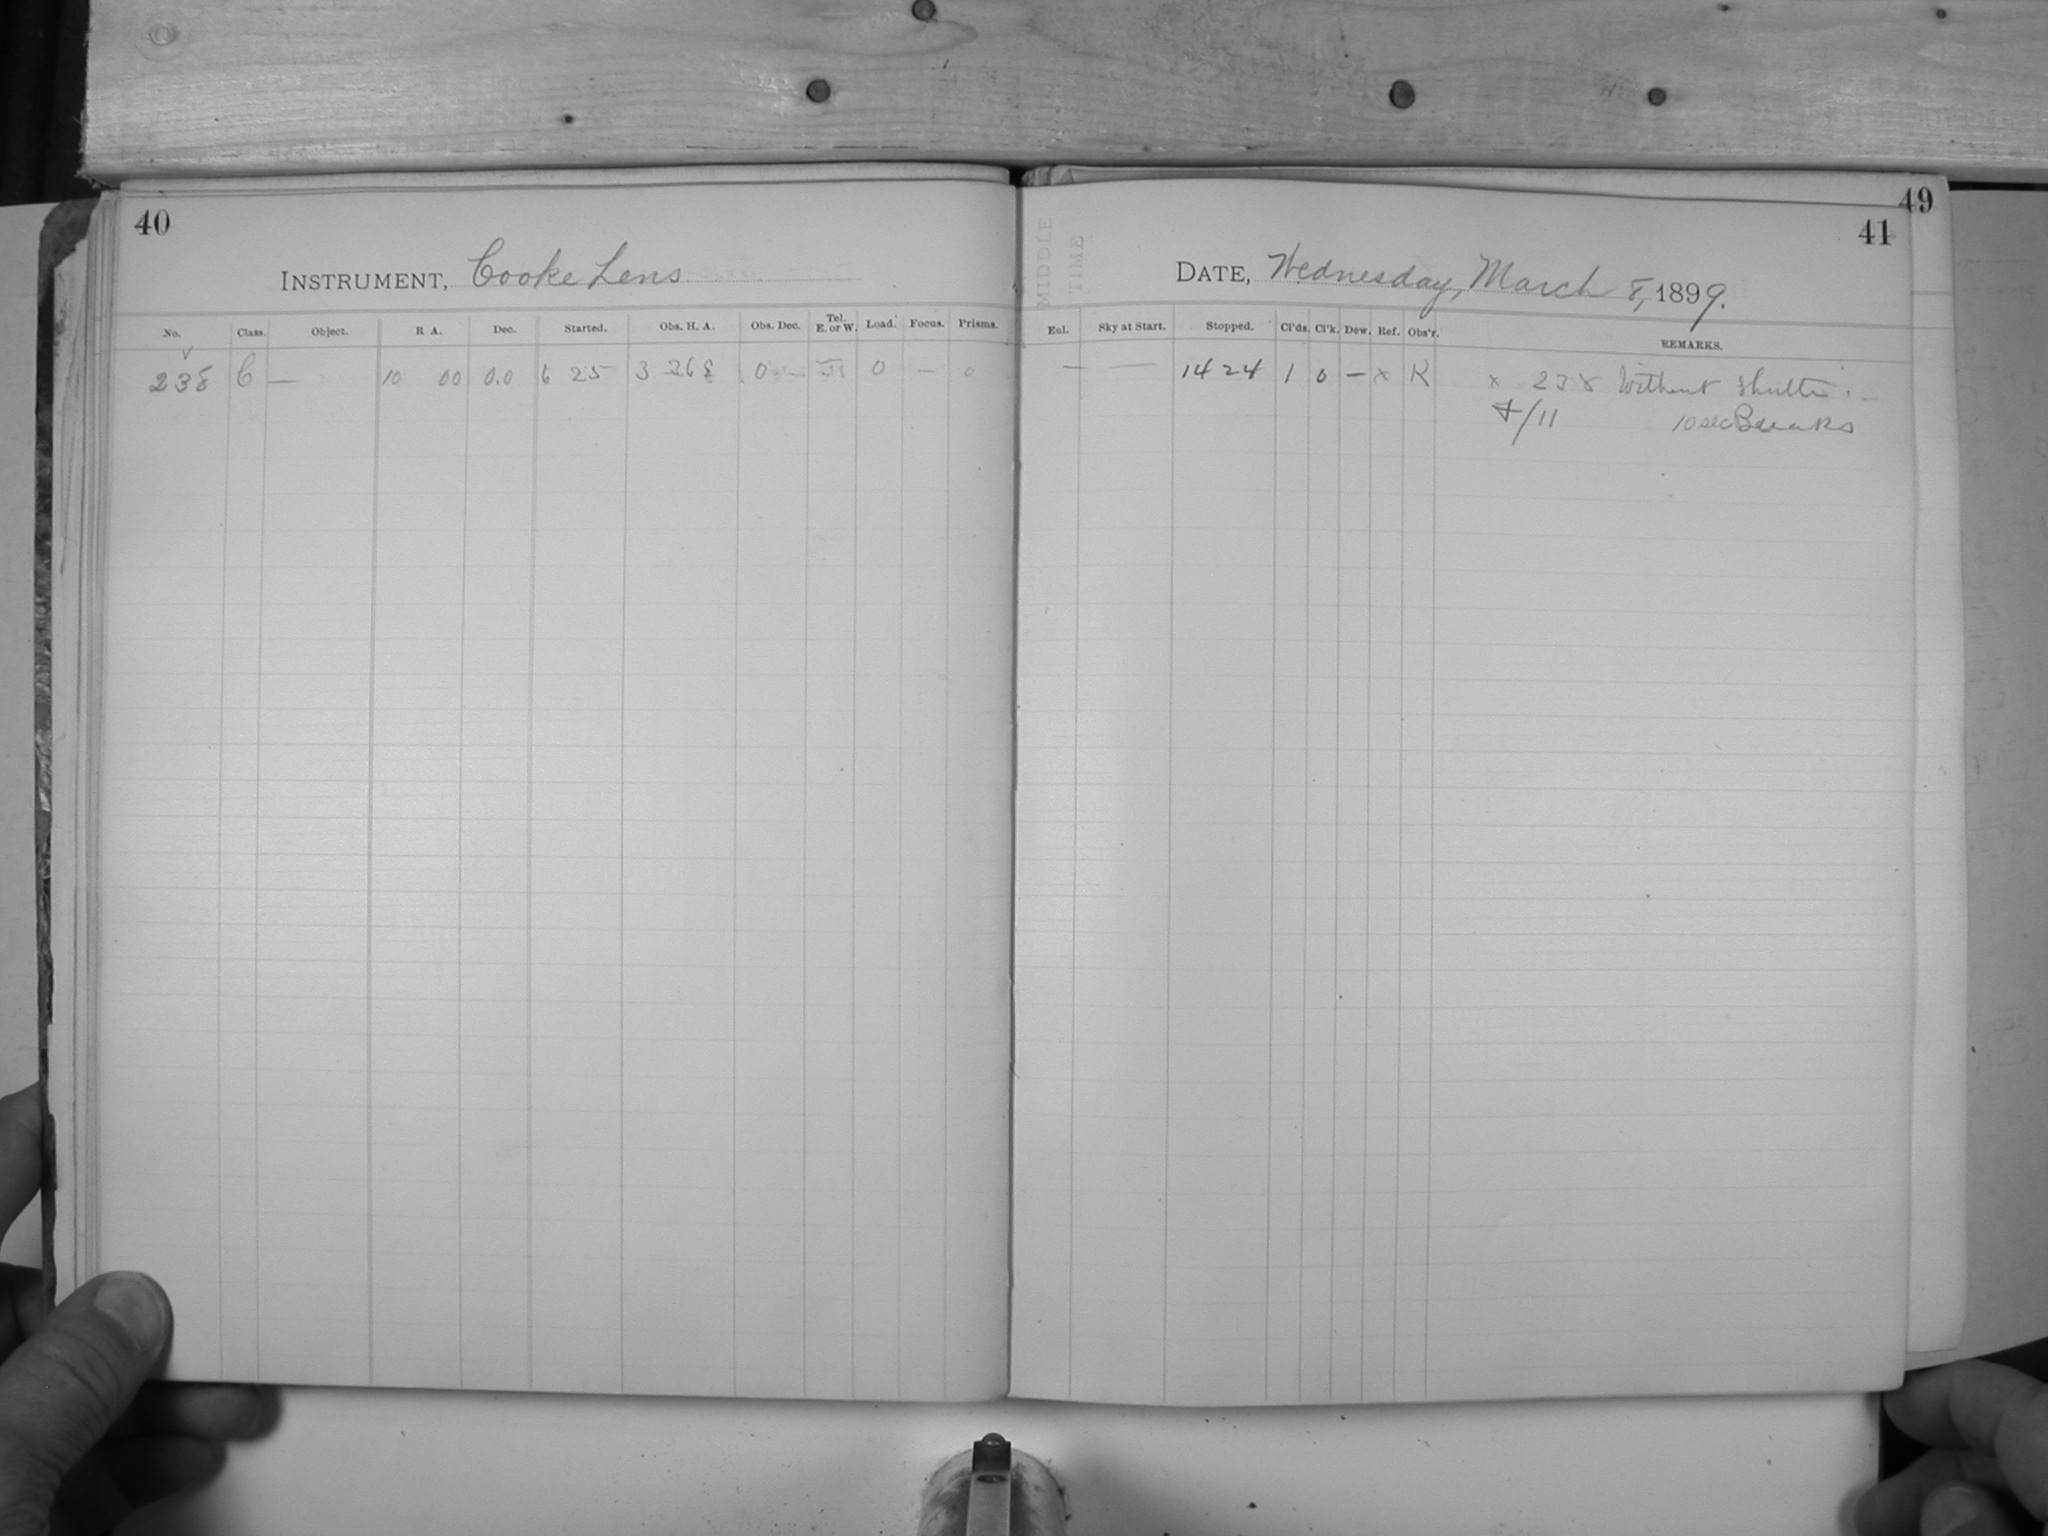 40
INSTRUMENT, Cooke Lens
No. Class. Object. R A. Dec. Started. Obs. H. A. Obs. Dec. Tel. E. or W. Load. Focus. Prisms.
238 C — 10 00 0.0 6 25 3 26 E 0 III 0 — 0
49
41
MIDDLE
TIME
DATE, Wednesday, March 8, 1899.
Enl. Sky at Start. Stopped. Cl'ds. Cl'k. Dew. Ref. Obs'r. REMARKS.
— — 14 24 1 0 — x K x 238 Without Shutter.
10 sec Breaks